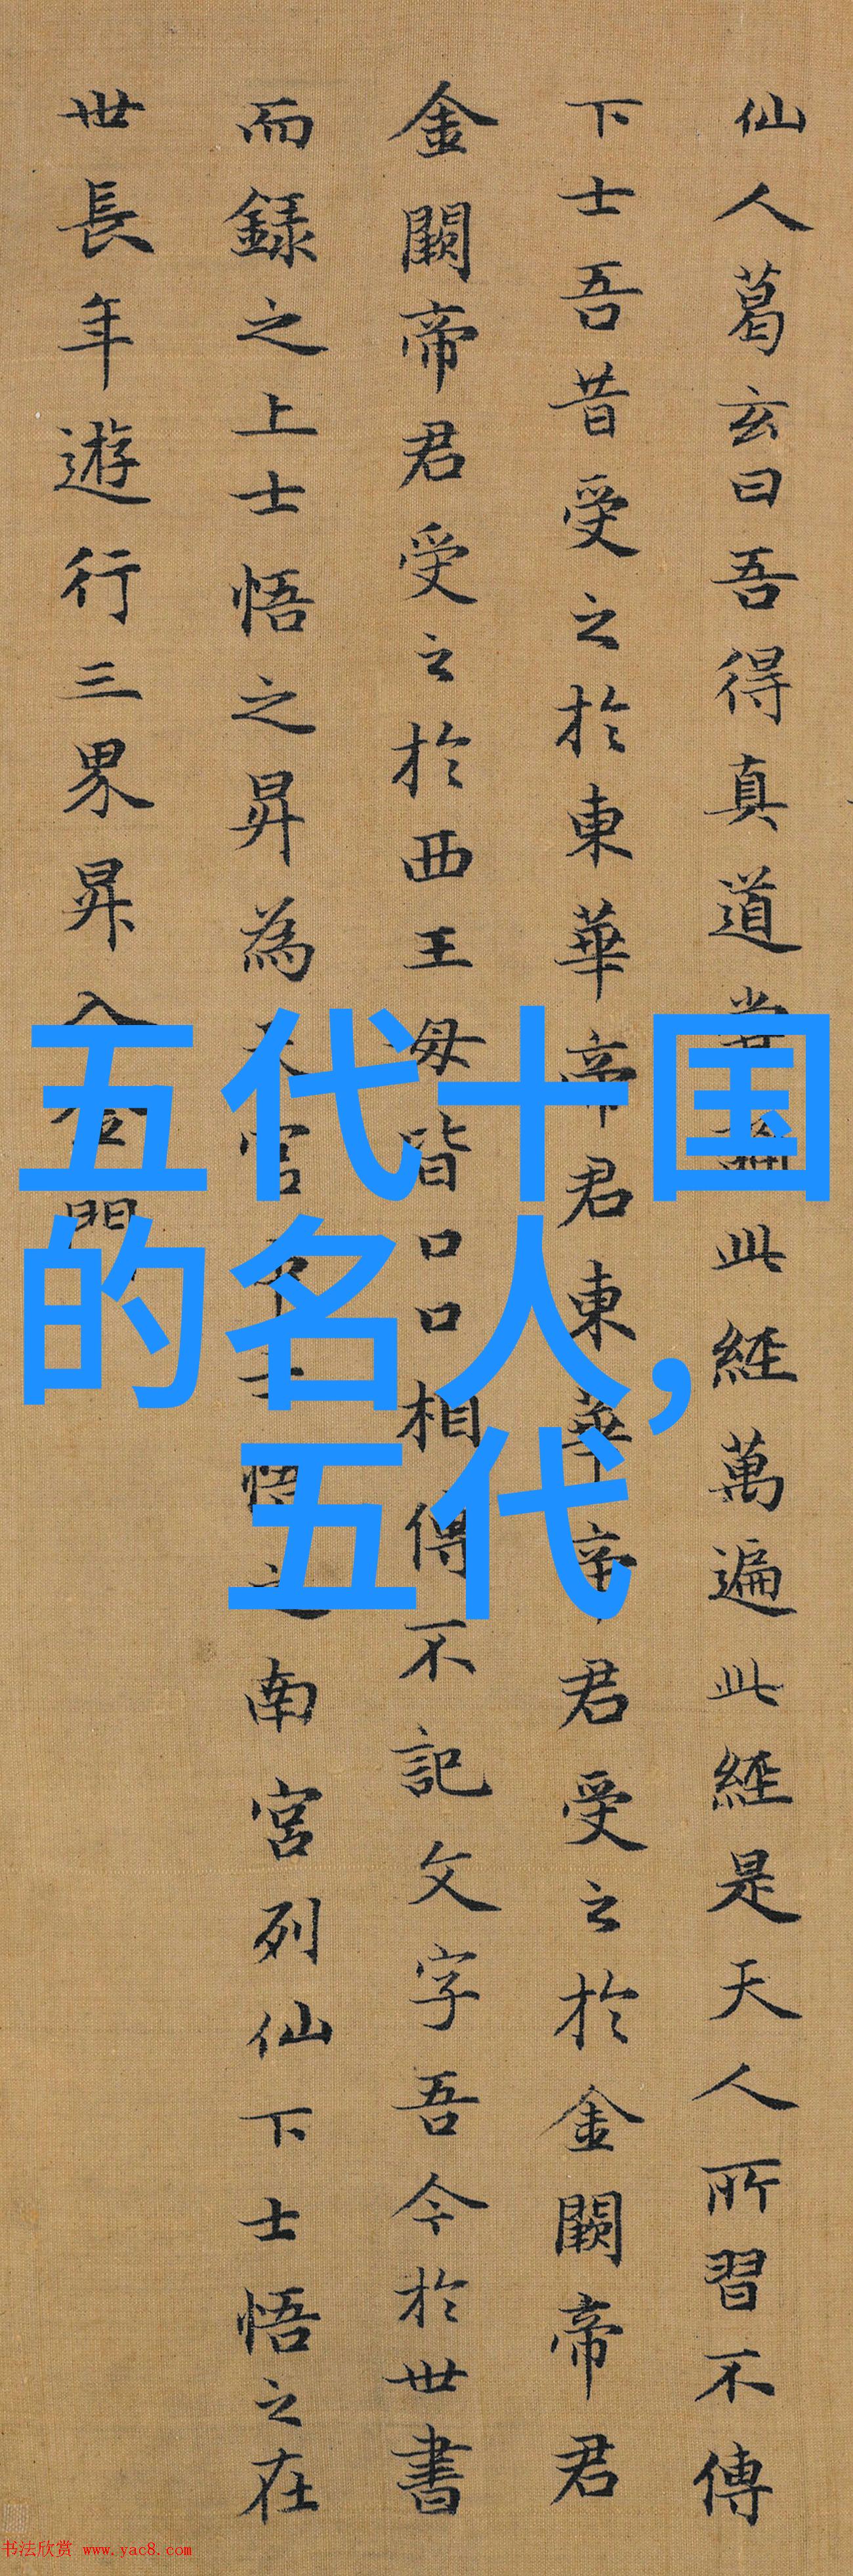 五代十国
的名人,
五代
仙人葛玄曰吾得真道此經萬遍此經是天人所習不傳
下士吾昔受之於東華帝君東華帝君受之於金闕帝君
金闕帝君受之於西王母皆口口相傳不記文字吾今於世書
而録之上士悟之昇為天官中士悟之南宮列仙下士悟之在
世長年遊行三界昇入金門
书法欣赏 www.yac8.com